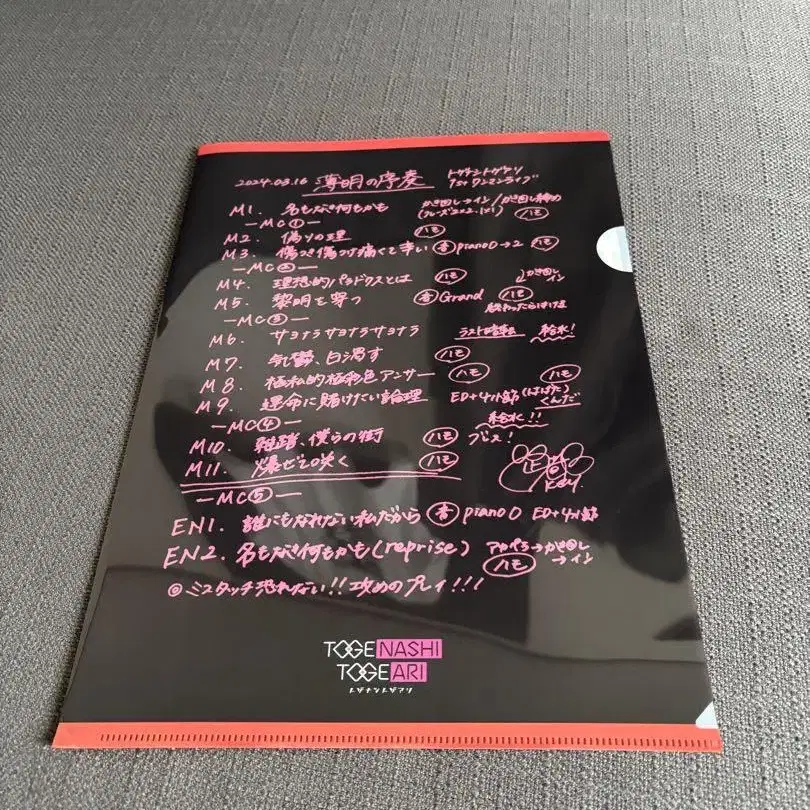 2024.03.16 薄明の序奏 トゲナシトゲアリ 1stワンマンライブ
M1. 名もなき何もかも かき回し→イン/かき回し締め
(フレーズ2×2、1×1) ハモ
—MC①—
M2. 偽りの理 ハモ
M3. 傷つき傷つけ痛くて辛い 音 piano0→2 ハモ
—MC②—
M4. 理想的パラドクスとは ハモ かき回し イン
M5. 黎明を穿つ 音 Grand ハモ
終わったらはける
—MC③—
M6. サヨナラサヨナラサヨナラ ラスト暗転 給水!
M7. 気鬱、白濁す ハモ
M8. 極私的極彩色アンサー ハモ ハモ
M9. 運命に賭けたい論理 ED+4小節(はばたくんだ)
給水!!
—MC④—
M10. 雑踏、僕らの街 ハモ ブレス!
M11. 爆ぜて咲く ハモ
—MC⑤—
EN1. 誰にもなれない私だから 音 piano0 ED+4小節
EN2. 名もなき何もかも(reprise) アカペラ→かき回し
ハモ →イン
◎ミスタッチ恐れない!!攻めのプレイ!!!
TOGENASHI
TOGEARI
トゲナシトゲアリ